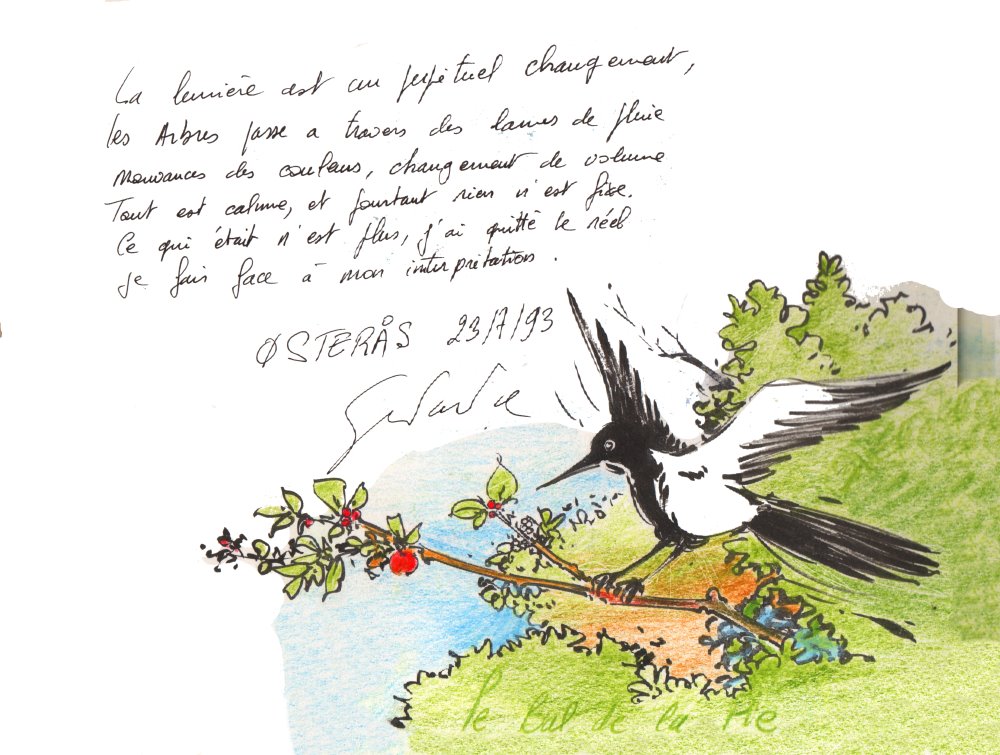 La lumière est un perpétuel changement,
les Arbres passe a travers des lames de pluie
Mouvances des couleurs, changement de volume
Tout est calme, et pourtant rien n'est fixe.
Ce qui était n'est plus, j'ai quitté le réel
je fais face à mon interprétation.
ØSTERÅS 23/7/93
le bal de la Pie